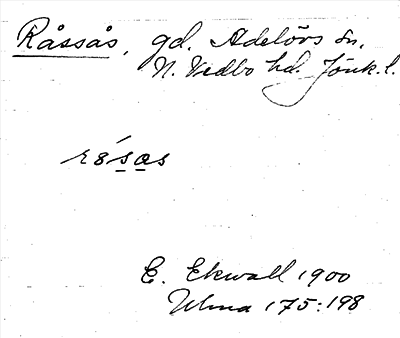 Råssås, gd. Adelövs sn,
N. Vedbo hd. Jönk. l.
E. Ekwall 1900
Ulma 175:198